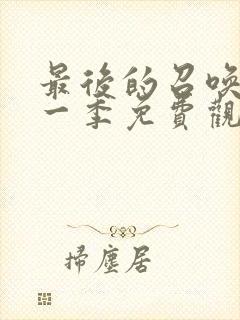 最後的召喚
一季免費觀
掃塵居